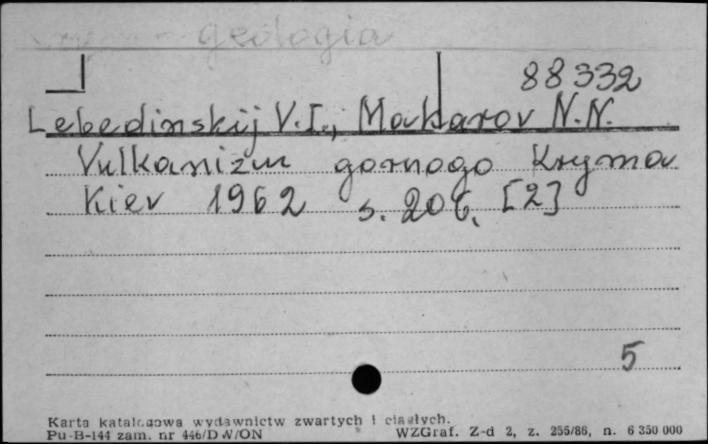 Krym - geologia
88332
Lebedinskij V.I., Makarov N.N.
Vulkanizm gornogo Kryma
Kiev 1962 s. 206, [2]
5
Karta katalogowa wydawnictw zwartych i ciągłych.
Pu-B-144 zam. nr 446/DW/ON WZGraf. Z-d 2, z. 255/86, n. 6 350 000